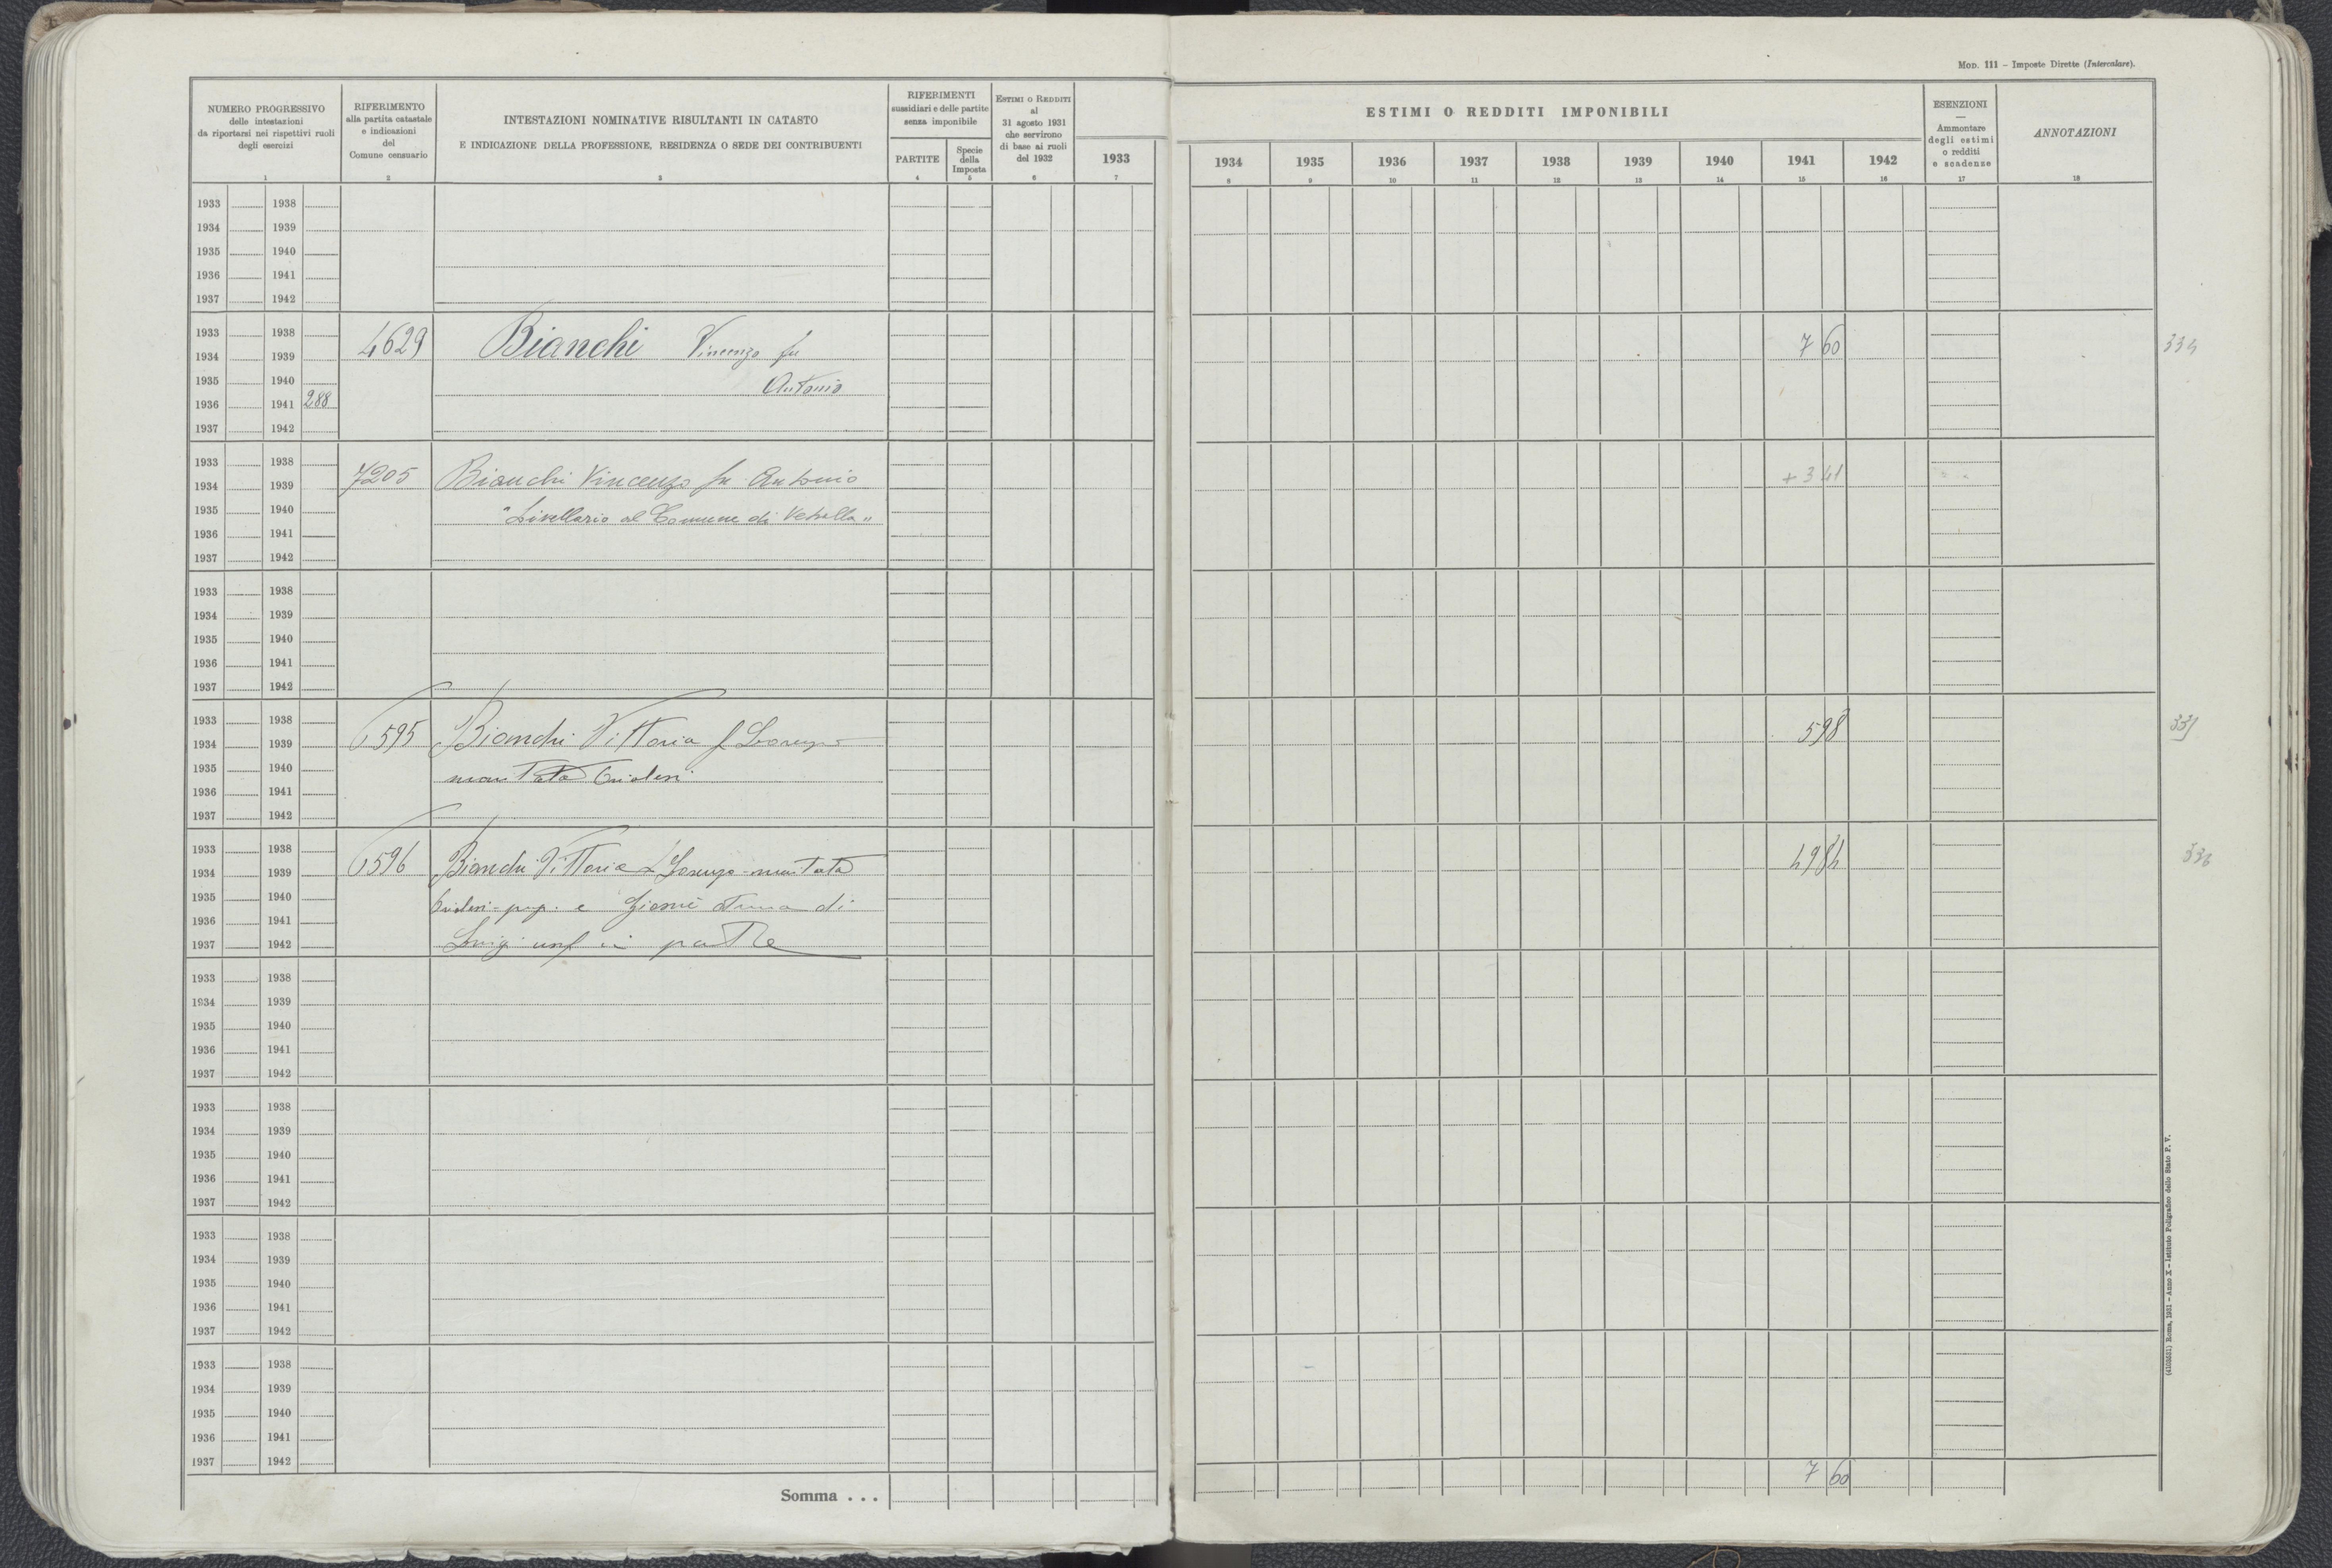 Mod. 111 – Imposte Dirette (Intercalare).
NUMERO PROGRESSIVO
delle intestazioni
da riportarsi nei rispettivi ruoli
degli esercizi
1
RIFERIMENTO
alla partita catastale
e indicazioni
del
Comune censuario
2
INTESTAZIONI NOMINATIVE RISULTANTI IN CATASTO
E INDICAZIONE DELLA PROFESSIONE, RESIDENZA O SEDE DEI CONTRIBUENTI
3
RIFERIMENTI
sussidiari e delle partite
senza imponibile
PARTITE
4
Specie
della
Imposta
5
Estimi o Redditi
al
31 agosto 1931
che servirono
di base ai ruoli
del 1932
6
1933
7
ESTIMI O REDDITI IMPONIBILI
1934 1935 1936 1937 1938 1939 1940 1941 1942
8 9 10 11 12 13 14 15 16
ESENZIONI
—
Ammontare
degli estimi
o redditi
e scadenze
17
ANNOTAZIONI
18
1933 1938
1934 1939
1935 1940
1936 1941
1937 1942
1933 1938
4629 Bianchi Vincenzo fu 7 60
1934 1939
1935 1940 Antonio
1936 1941 288
1937 1942
1933 1938
7205 Bianchi Vincenzo fu Antonio + 3 41
1934 1939
1935 1940 "Livellario al Comune di Vetralla"
1936 1941
1937 1942
1933 1938
1934 1939
1935 1940
1936 1941
1937 1942
1933 1938
6595 Bianchi Vittoria f Lorenzo 598
1934 1939
1935 1940 maritata
1936 1941
1937 1942
1933 1938
6596 Bianchi Vittoria f Lorenzo maritata 4984 336
1934 1939
1935 1940 prop. e di
1936 1941
1937 1942 Luigi usf in parte
1933 1938
1934 1939
1935 1940
1936 1941
1937 1942
1933 1938
1934 1939
1935 1940
1936 1941
1937 1942
1933 1938
1934 1939
1935 1940
1936 1941
1937 1942
1933 1938
1934 1939
1935 1940
1936 1941
1937 1942
Somma . . . 7 60
(4103531) Roma, 1931 – Anno X – Istituto Poligrafico dello Stato P. V.